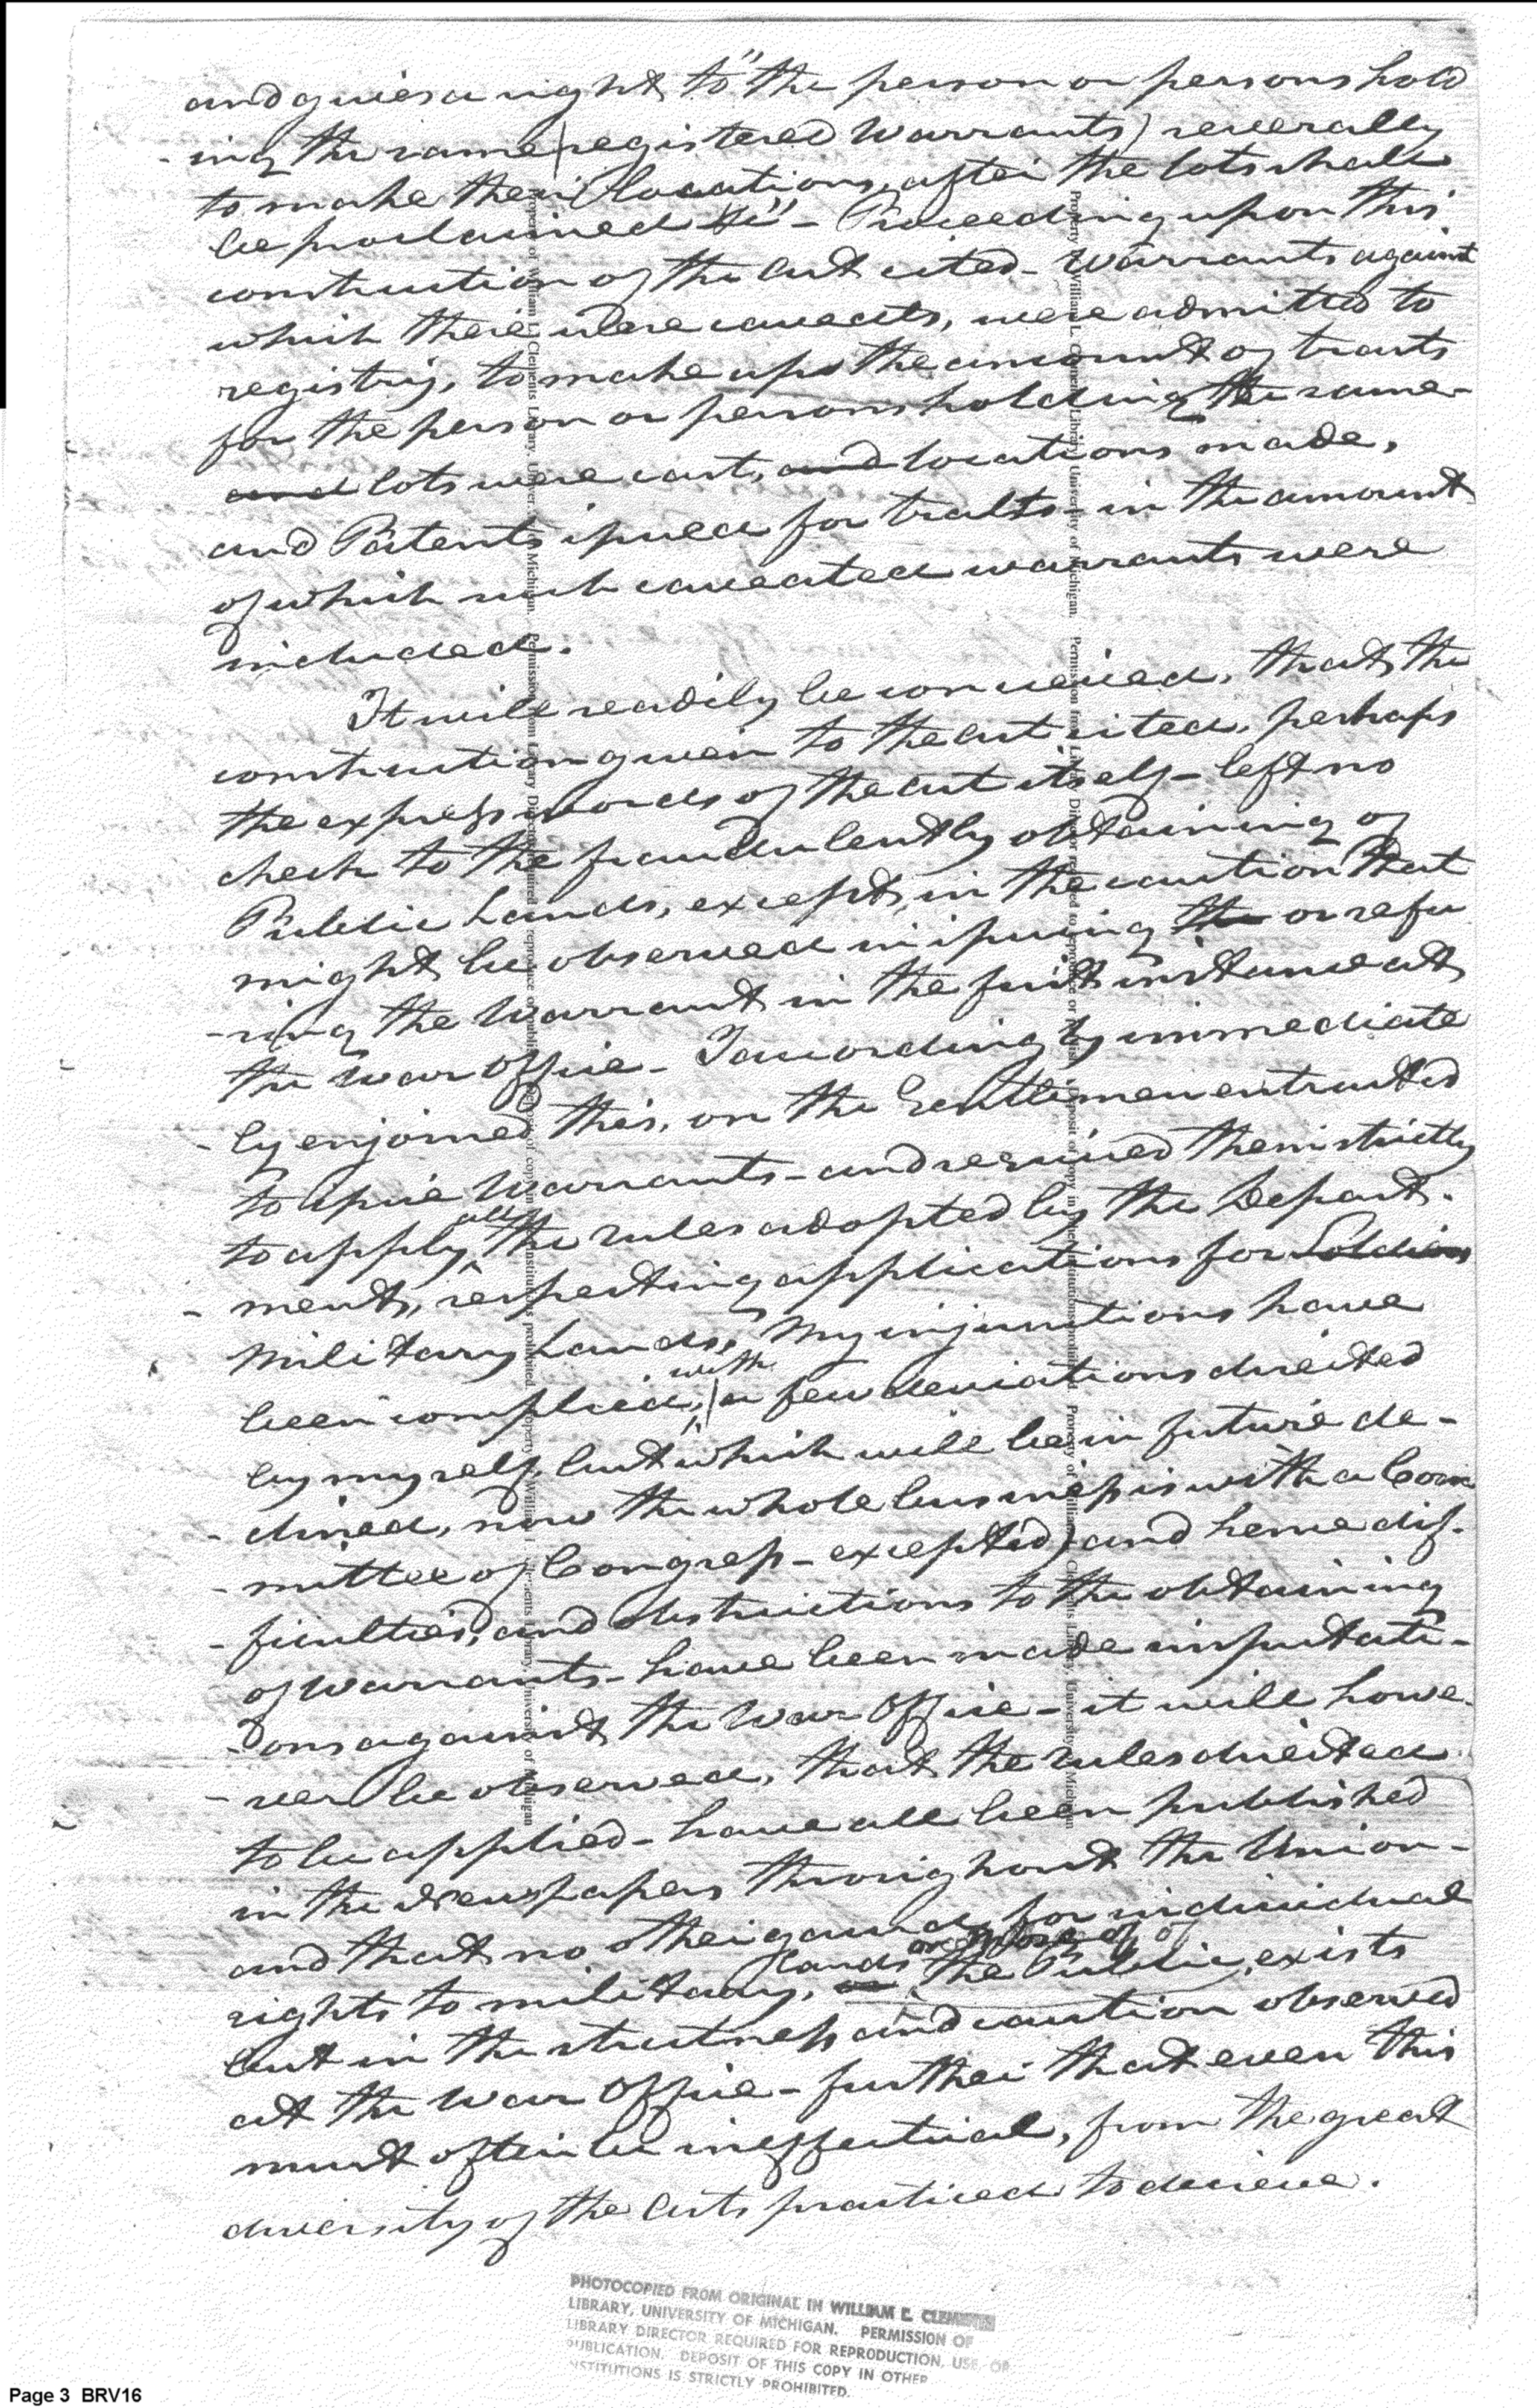 and gives a right to "the person or persons hold
-ing the same (registered Warrants) severally
to make their locations, after the lots shall
be proclaimed &c" - Proceeding upon this
construction of the act cited - Warrants against
which there were caveats, were admitted to
registry, to make up the amount of tracts
for the person or persons holding the same -
and lots were cast, and locations made,
and Patents issued for tracts - in the amount
of which such caveated warrants were
included.
It will readily be conceived, that the
construction given to the act cited, perhaps
the express words of the act itself - left no
check to the fraudulently obtaining of
Public Lands, except, in the caution that
might be observed in issuing the or refu
-sing the Warrant in the first instance at
the War Office - I accordingly immediate
-ly enjoined this, on the Gentlemen entrusted
to issue Warrants - and required them strictly
to apply all the rules adopted by the Depart-
-ment, respecting applications for Soldiers
Military Lands, My injunctions have
been complied, with (a few deviations directed
by myself, but which will be in future de-
-clined, now the whole business is with a Com
-mittee of Congress - excepted) and hence dif-
-ficulties, and obstructions to the obtaining
of Warrants - have been made imputati-
-ons against the War Office - it will howe-
-ver be observed, that the rules directed
to be applied - have all been published
in the Newspapers throughout the Union -
and that no other guard, for individual
rights to military, lands or those of the Public, exists
but in the strictness and caution observed
at the War Office - further that even this
must often be ineffectual, from the great
diversity of the arts practiced to deceive.
PHOTOCOPIED FROM ORIGINAL IN WILLIAM L. CLEMENTS
LIBRARY, UNIVERSITY OF MICHIGAN. PERMISSION OF
LIBRARY DIRECTOR REQUIRED FOR REPRODUCTION, USE, OR
PUBLICATION. DEPOSIT OF THIS COPY IN OTHER
INSTITUTIONS IS STRICTLY PROHIBITED.
Page 3 BRV16